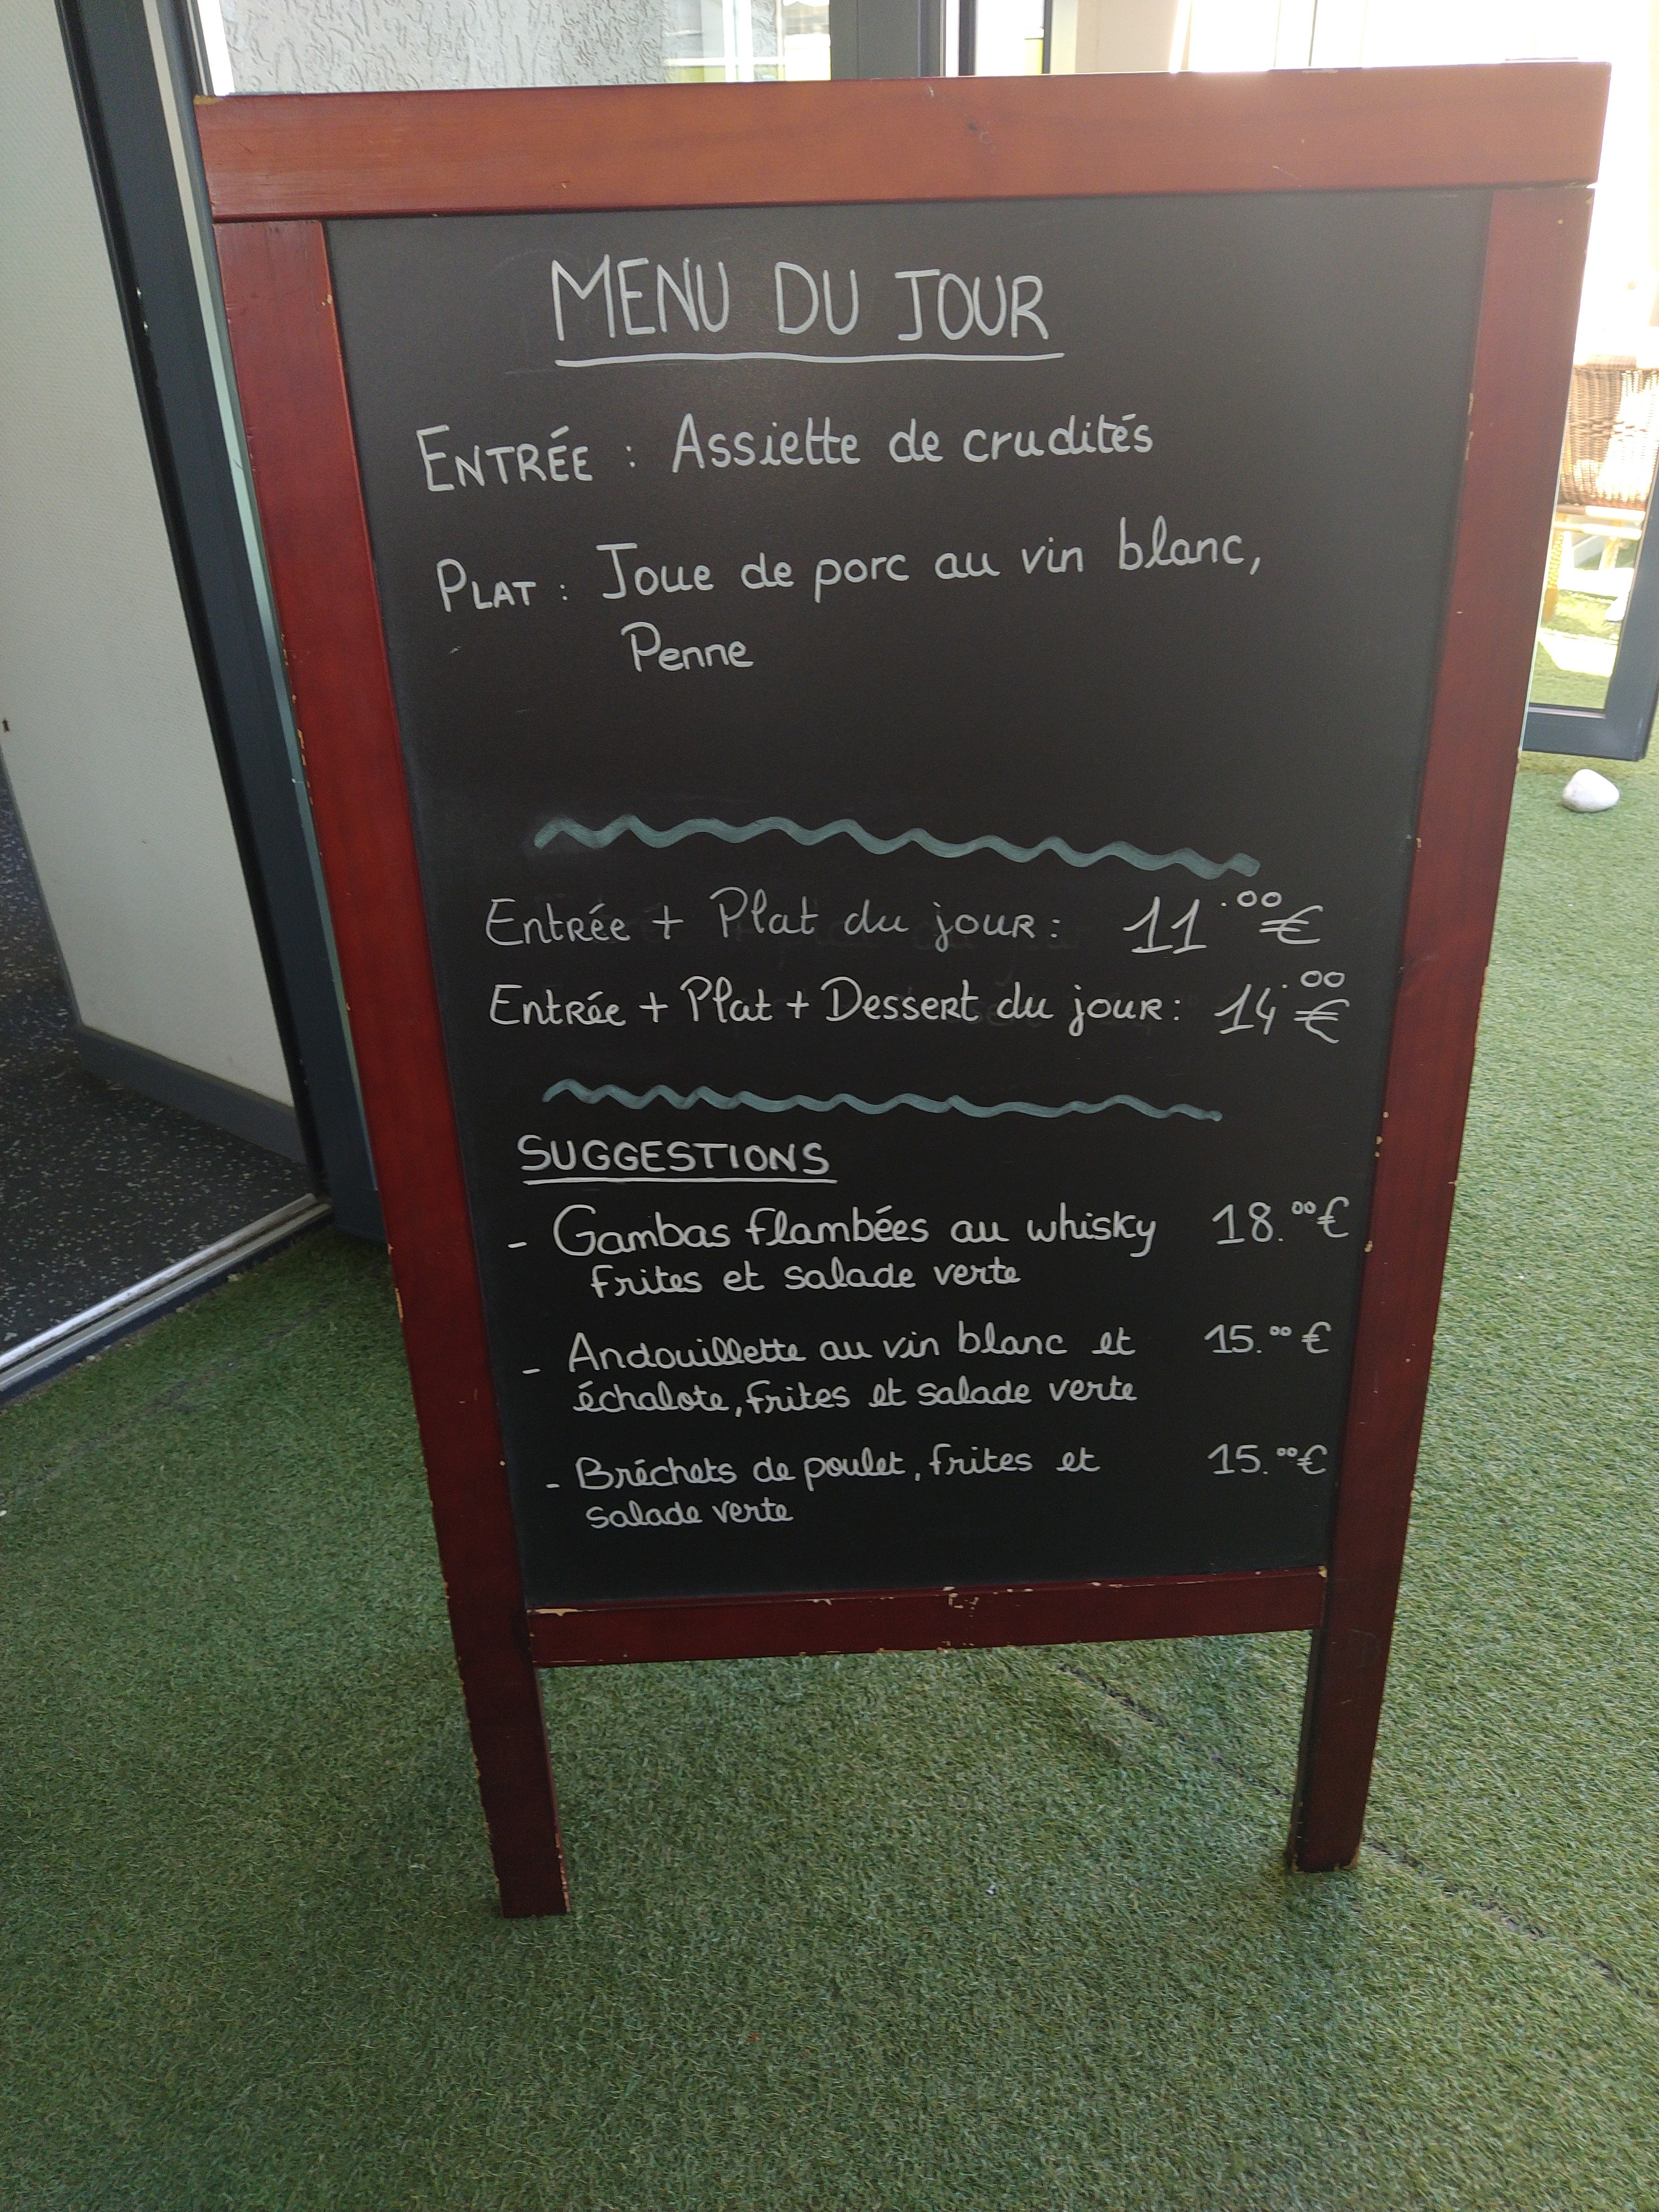 MENU DU JOUR
ENTRÉE : Assiette de crudités
PLAT : Joue de porc au vin blanc,
Penne
Entrée + Plat du jour : 11.00€
Entrée + Plat + Dessert du jour : 14.00€
SUGGESTIONS
- Gambas flambées au whisky 18.00€
frites et salade verte
- Andouillette au vin blanc et 15.00€
échalote, frites et salade verte
- Bréchets de poulet, frites et 15.00€
salade verte